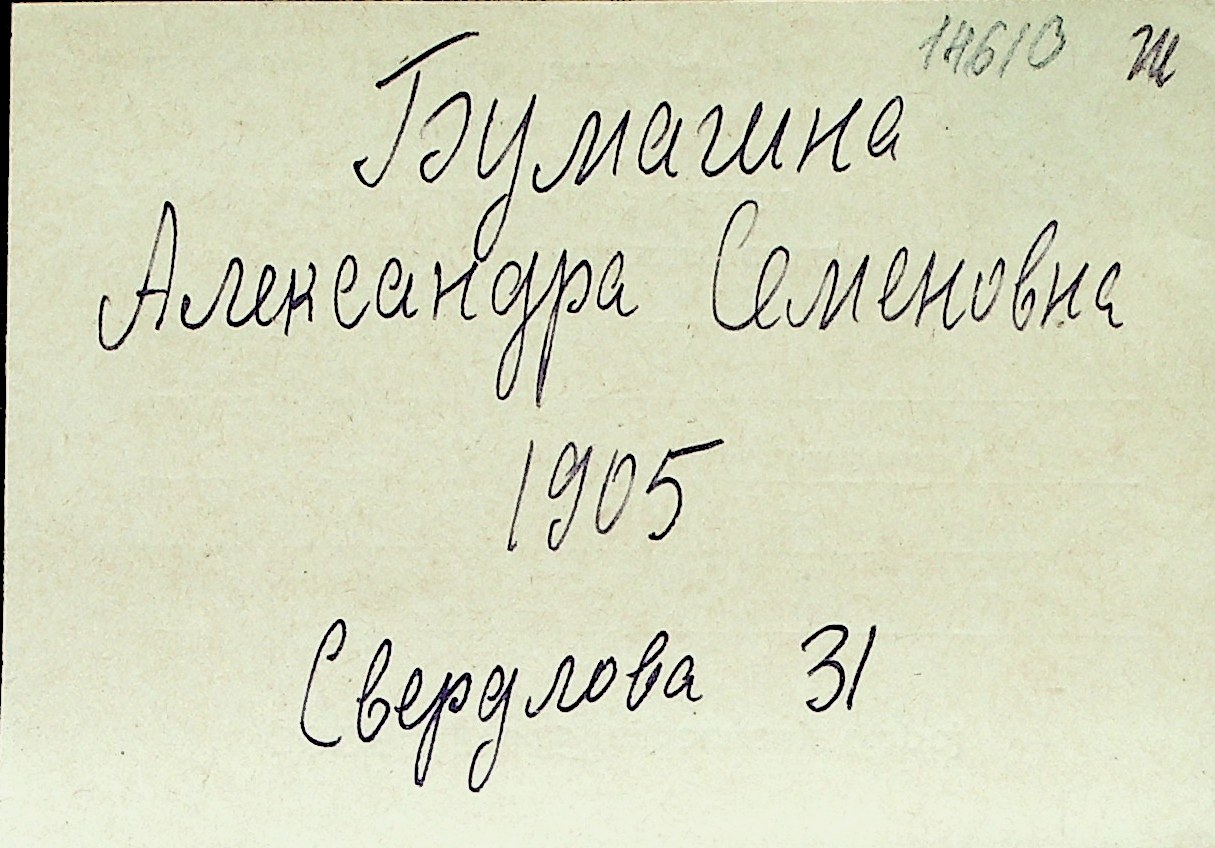 Бумагина
Александра Семеновна
1905
Свердлова 31